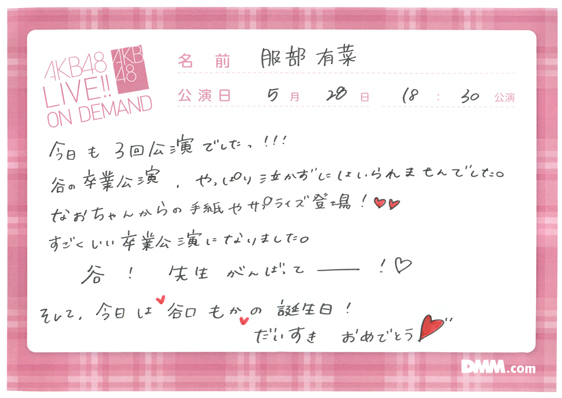 AKB48
LIVE!!
ON DEMAND
AKB
48
名前 服部有菜
公演日 5月28日 18:30公演
今日も3回公演でしたっ!!!
谷の卒業公演、やっぱり泣かずにはいられませんでした。
なおちゃんからの手紙やサプライズ登場!
すごくいい卒業公演になりました。
谷! 先生がんばって──!♡
そして、今日は谷口もかの誕生日!
だいすき おめでとう
DMM.com